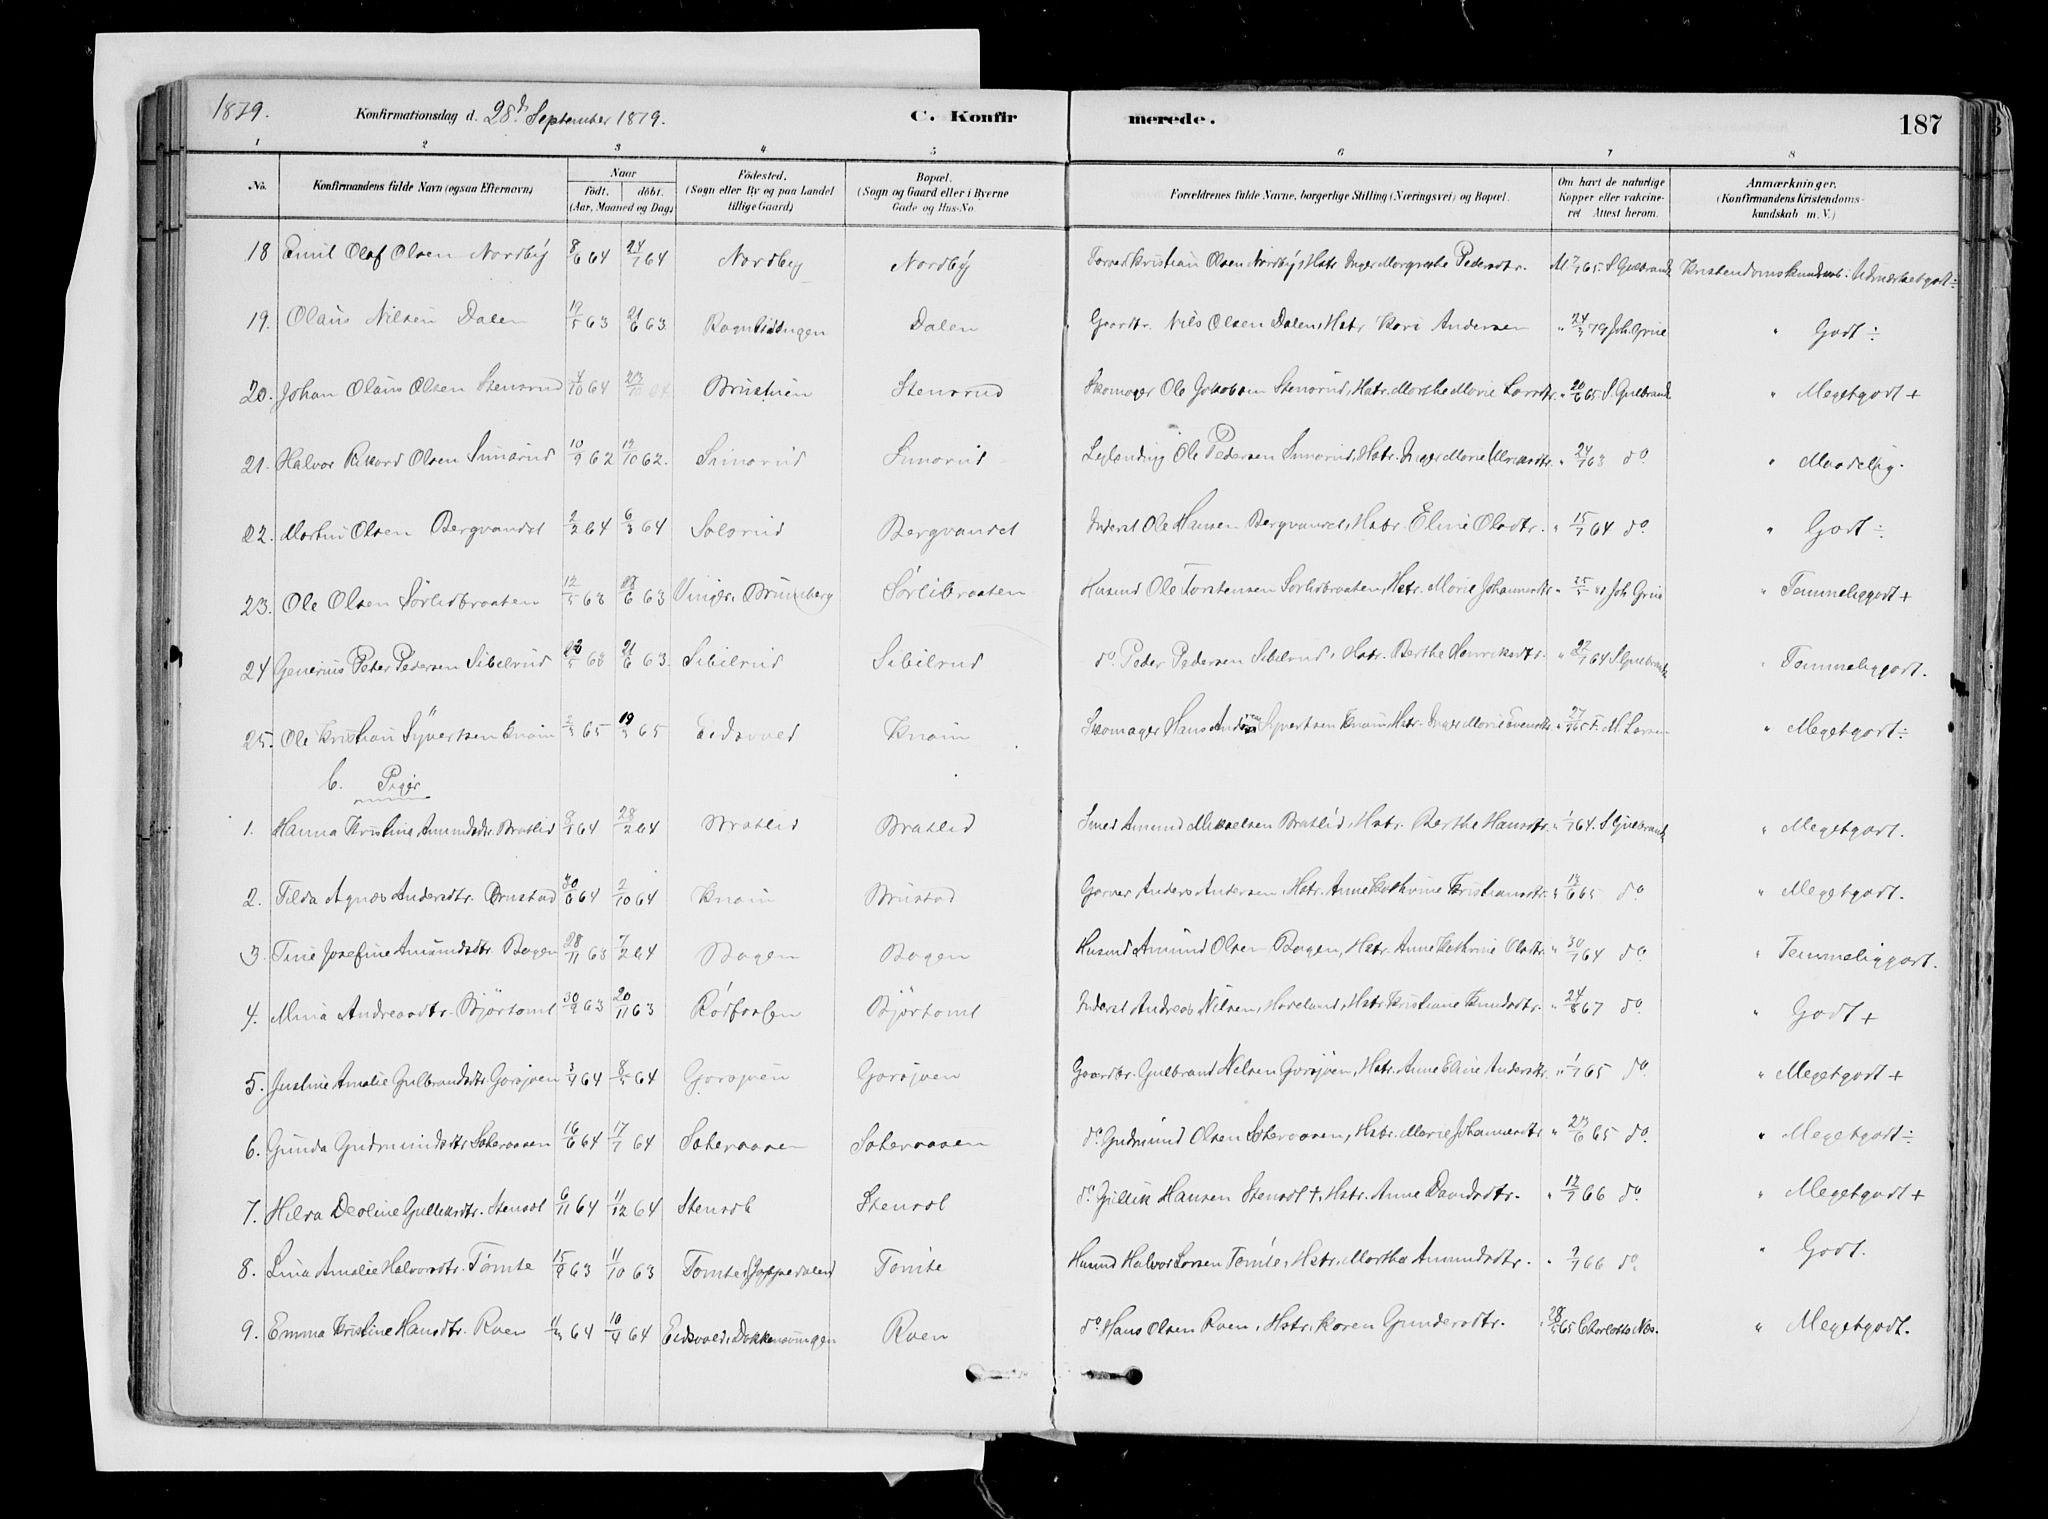 1879. Konfirmationsdag d. 28de September 1879. C. Konfirmerede. 187
1 2 3 4 5 6 7 8
No. Konfirmandens fulde Navn (ogsaa Efternavn) Naar født, døbt. (Aar, Maaned og Dag) Fødested. (Sogn eller By og paa Landet tillige Gaard) Bopæl. (Sogn og Gaard eller i Byerne Gade og Hus-No. Forældrenes fulde Navne, borgerlige Stilling (Næringsvei) og Bopæl. Om havt de naturlige Kopper eller vakcineret. Attest herom. Anmærkninger. (Konfirmandens Kristendomskundskab m. V.)
18 Emil Olaf Olsen Nordby 8/6 64 24/7 64 Nordby Nordby Kristian Olsen Nordby, Hstr. Inger Margrethe Pedersdtr. 65 S. Gulbrands Kristendomskundskab: Udmærketgodt ÷
19. Olaus Nilsen Dalen 19/5 63 21/6 63 Dalen Gaardbr. Nils Olsen Dalen, Hstr. Kari Andersen " 24/3 79 Joh. Grue " Godt ÷
20. Johan Olaus Olsen Stensrud 4/10 64 23/10 64 Brustuen Stensrud Skomager Ole Jakobsen Stensrud, Hstr. Marthe Marie Larsdtr. " 20/6 65 S. Gulbrands " Megetgodt +
21. Halvor Rikard Olsen Simarud 10/9 62 12/10 62. Simarud Simarud Leilænding Ole Pedersen Simarud, Hstr. Inger Marie " 24/7 63 do " Maadelig.
22. Martin Olsen Bergvandet 2/2 64 6/3 64 Solarud Bergvandet Inderst Ole Hansen Bergvandet, Hstr. Eline Olsdtr. " 15/7 64 do " Godt ÷
23. Ole Olsen Sørlibraaten 12/5 63 28/6 63 Vinger, Brumberg Sørlibraaten Husmd Ole Torstensen Sørlibraaten, Hstr. Marie Johannesdtr. " 25/5 Joh. Grue " Temmeliggodt +
24 Generius Peter Pedersen Sibilrud 22/5 63 21/6 63. Sibilrud Sibilrud do Peder Pedersen Sibilrud, Hstr. Berthe Henriksdtr. " 22/7 64 S Gulbrands " Temmeliggodt.
25. Ole Kristian Syversen Knain 2/3 65 19/3 65 Eidsvold Knain Skomager Hans Syvertsen Knain, Hstr. Inger Marie Evensdtr. " 27/9 65 F. M. Larsen " Megetgodt ÷
b. Piger
1. Hanna Kristine Amundsdtr. Bratlid 9/1 64 28/2 64 Bratlid Bratlid Smed Amund Mikkelsen Bratlid, Hstr. Berthe Hansdtr. " 1/7 64. S Gulbrands " Megetgodt.
2. Tilda Agnes Andersdtr. Brustad 30/6 64 2/10 64 Knain Brustad Garver Anders Andersen, Hstr. Anne Kathrine Kristiansdtr. " 13/6 65 do " Megetgodt.
3. Tine Josefine Amundsdtr. Bagen 28/11 63 7/2 64 Bagen Bagen Husmd Amund Olsen Bagen, Hstr. Anne Kathrine Olsdtr. " 30/7 64 do " Temmeliggodt.
4. Mina Andreasdtr. Bjørtomt 30/9 63 20/11 63 Rødfossen Bjørtomt Inderst Andreas Nilsen, Haveland, Hstr. Kristiane Knudsdtr. " 24/8 67 do. " Godt +
5. Justine Amalie Gulbrandsdtr. Gorsjøen 3/4 64 8/5 64 Gorsjøen Gorsjøen Gaardbr. Gulbrand Nilsen Gorsjøen, Hstr. Anne Eline Andersdtr. " 1/7 65 do. " Megetgodt +
6. Gunda Gudmundsdtr. Sateraasen 16/6 64 17/7 64 Sateraasen Sateraasen do Gudmund Olsen Sateraasen, Hstr. Marie Johannesdtr. " 23/6 65 do " Megetgodt ÷
7. Hilda Deoline Gulliksdtr. Stensdl 6/11 64 11/12 64 Stensdl Stensdl do Gullik Hansen Stensdl †, Hstr. Anne Davidsdtr. " 12/7 66 do " Megetgodt +
8. Lina Amalie Halvorsdtr. Tømte 15/9 63 11/10 63 Tømte Tømte Husmd Halvor Larsen Tømte, Hstr. Marthe Amundsdtr. " 2/7 66 do. " Godt.
9. Emma Kristine Hansdtr. Roen 64 10/4 64 Eidsvold, Roen do Hans Olsen Roen, Hstr. Karen Gundersdtr. " 28/5 65 Charlotte Nes. " Megetgodt.